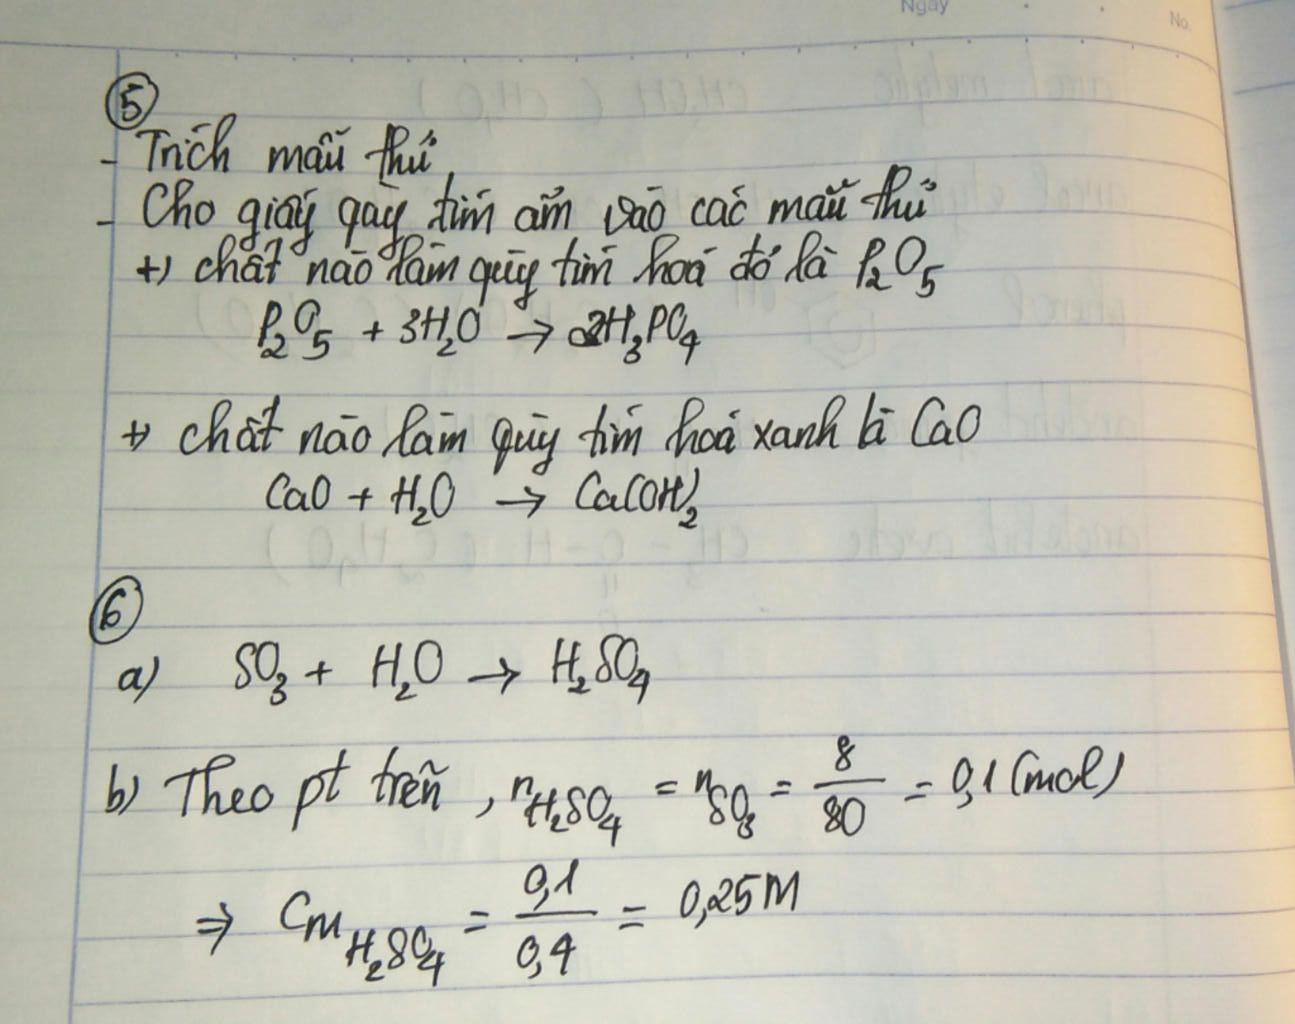 Ngày
No.
⑤
- Trích mẫu thử
- Cho giấy qùy tím ẩm vào các mẫu thử
+) chất nào làm qùy tím hoá đỏ là P₂O₅
P₂O₅ + 3H₂O → 2H₃PO₄
+) chất nào làm qùy tím hoá xanh là CaO
CaO + H₂O → Ca(OH)₂
⑥
a) SO₃ + H₂O → H₂SO₄
b) Theo pt trên, n_H₂SO₄ = n_SO₃ = 8/80 = 0,1 (mol)
⇒ C_M H₂SO₄ = 0,1/0,4 = 0,25M